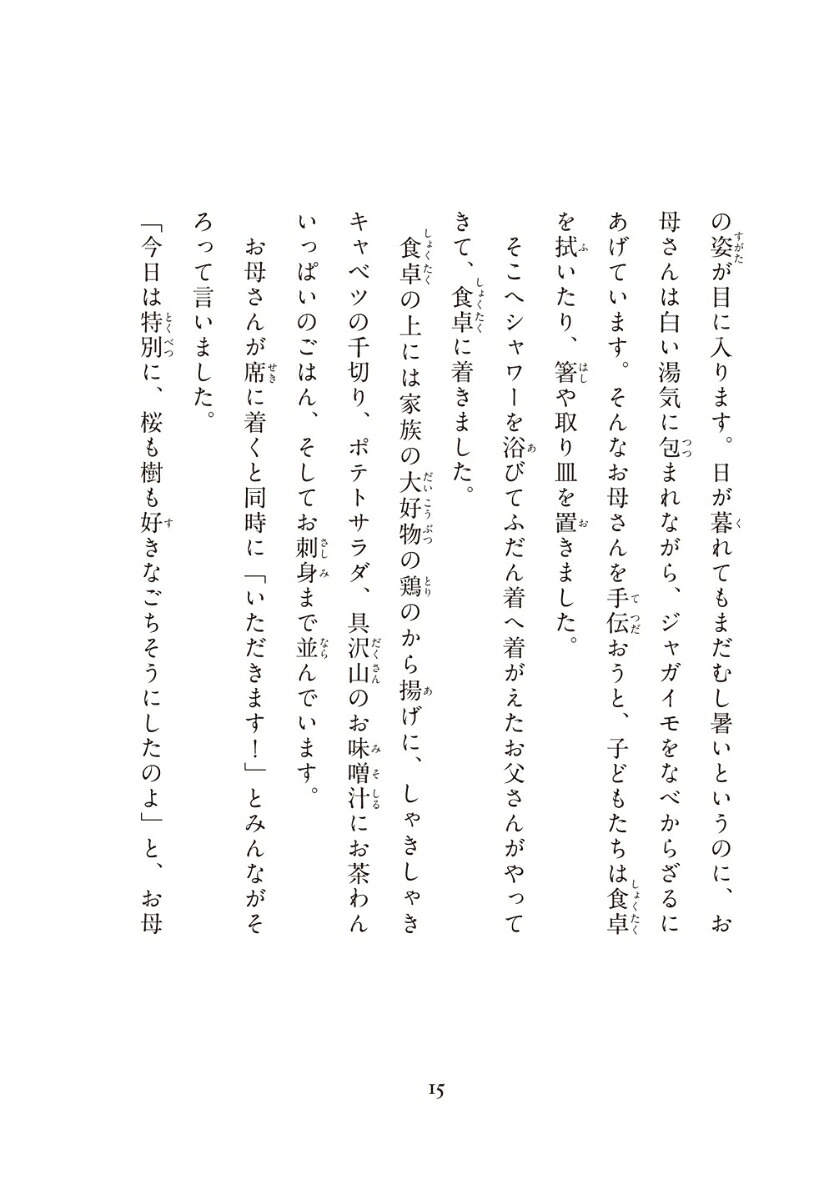 の姿が目に入ります。日が暮れてもまだむし暑いというのに、お
母さんは白い湯気に包まれながら、ジャガイモをなべからざるに
あげています。そんなお母さんを手伝おうと、子どもたちは食卓
を拭いたり、箸や取り皿を置きました。
そこへシャワーを浴びてふだん着へ着がえたお父さんがやって
きて、食卓に着きました。
食卓の上には家族の大好物の鶏のから揚げに、しゃきしゃき
キャベツの千切り、ポテトサラダ、具沢山のお味噌汁にお茶わん
いっぱいのごはん、そしてお刺身まで並んでいます。
お母さんが席に着くと同時に「いただきます！」とみんながそ
ろって言いました。
「今日は特別に、桜も樹も好きなごちそうにしたのよ」と、お母
15